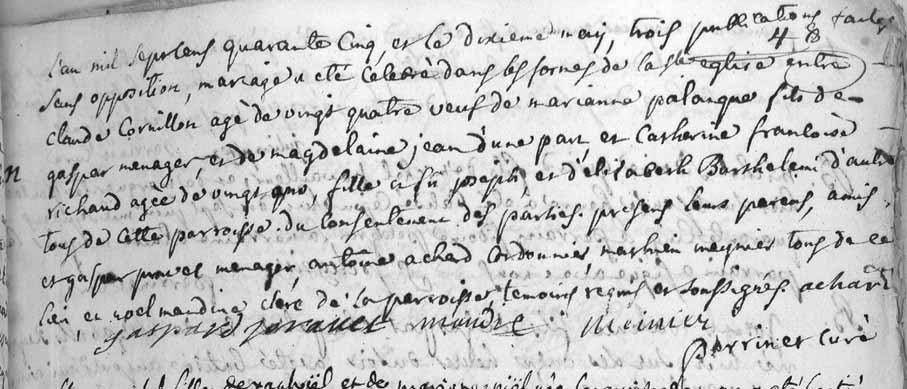 L'an mil sept cens quarante cinq, et le dixieme may, trois publications faites
48
sens opposition, mariage a eté celebré dans les formes de la Ste eglise entre
claude Cornillon agè de vingt quatre veuf de marianne palanque fils de
gaspar menager, et de magdelaine jean d'une part et Catherine francoise
richaud agée de vingt , fille a fû joseph, et d'élisabeth Barthelemi d'autre
tous de cette parroisse. du consentement des parties. presens leurs parens, amis,
et gaspar prouet menager, antoine achard Cordonnier mathieu meynier tous de ce
lieu, et noel mandine clerc de la parroisse, temoins requis et soussignés achard
gaspard prouet mandine meinier
perrinet curè
fille de et de